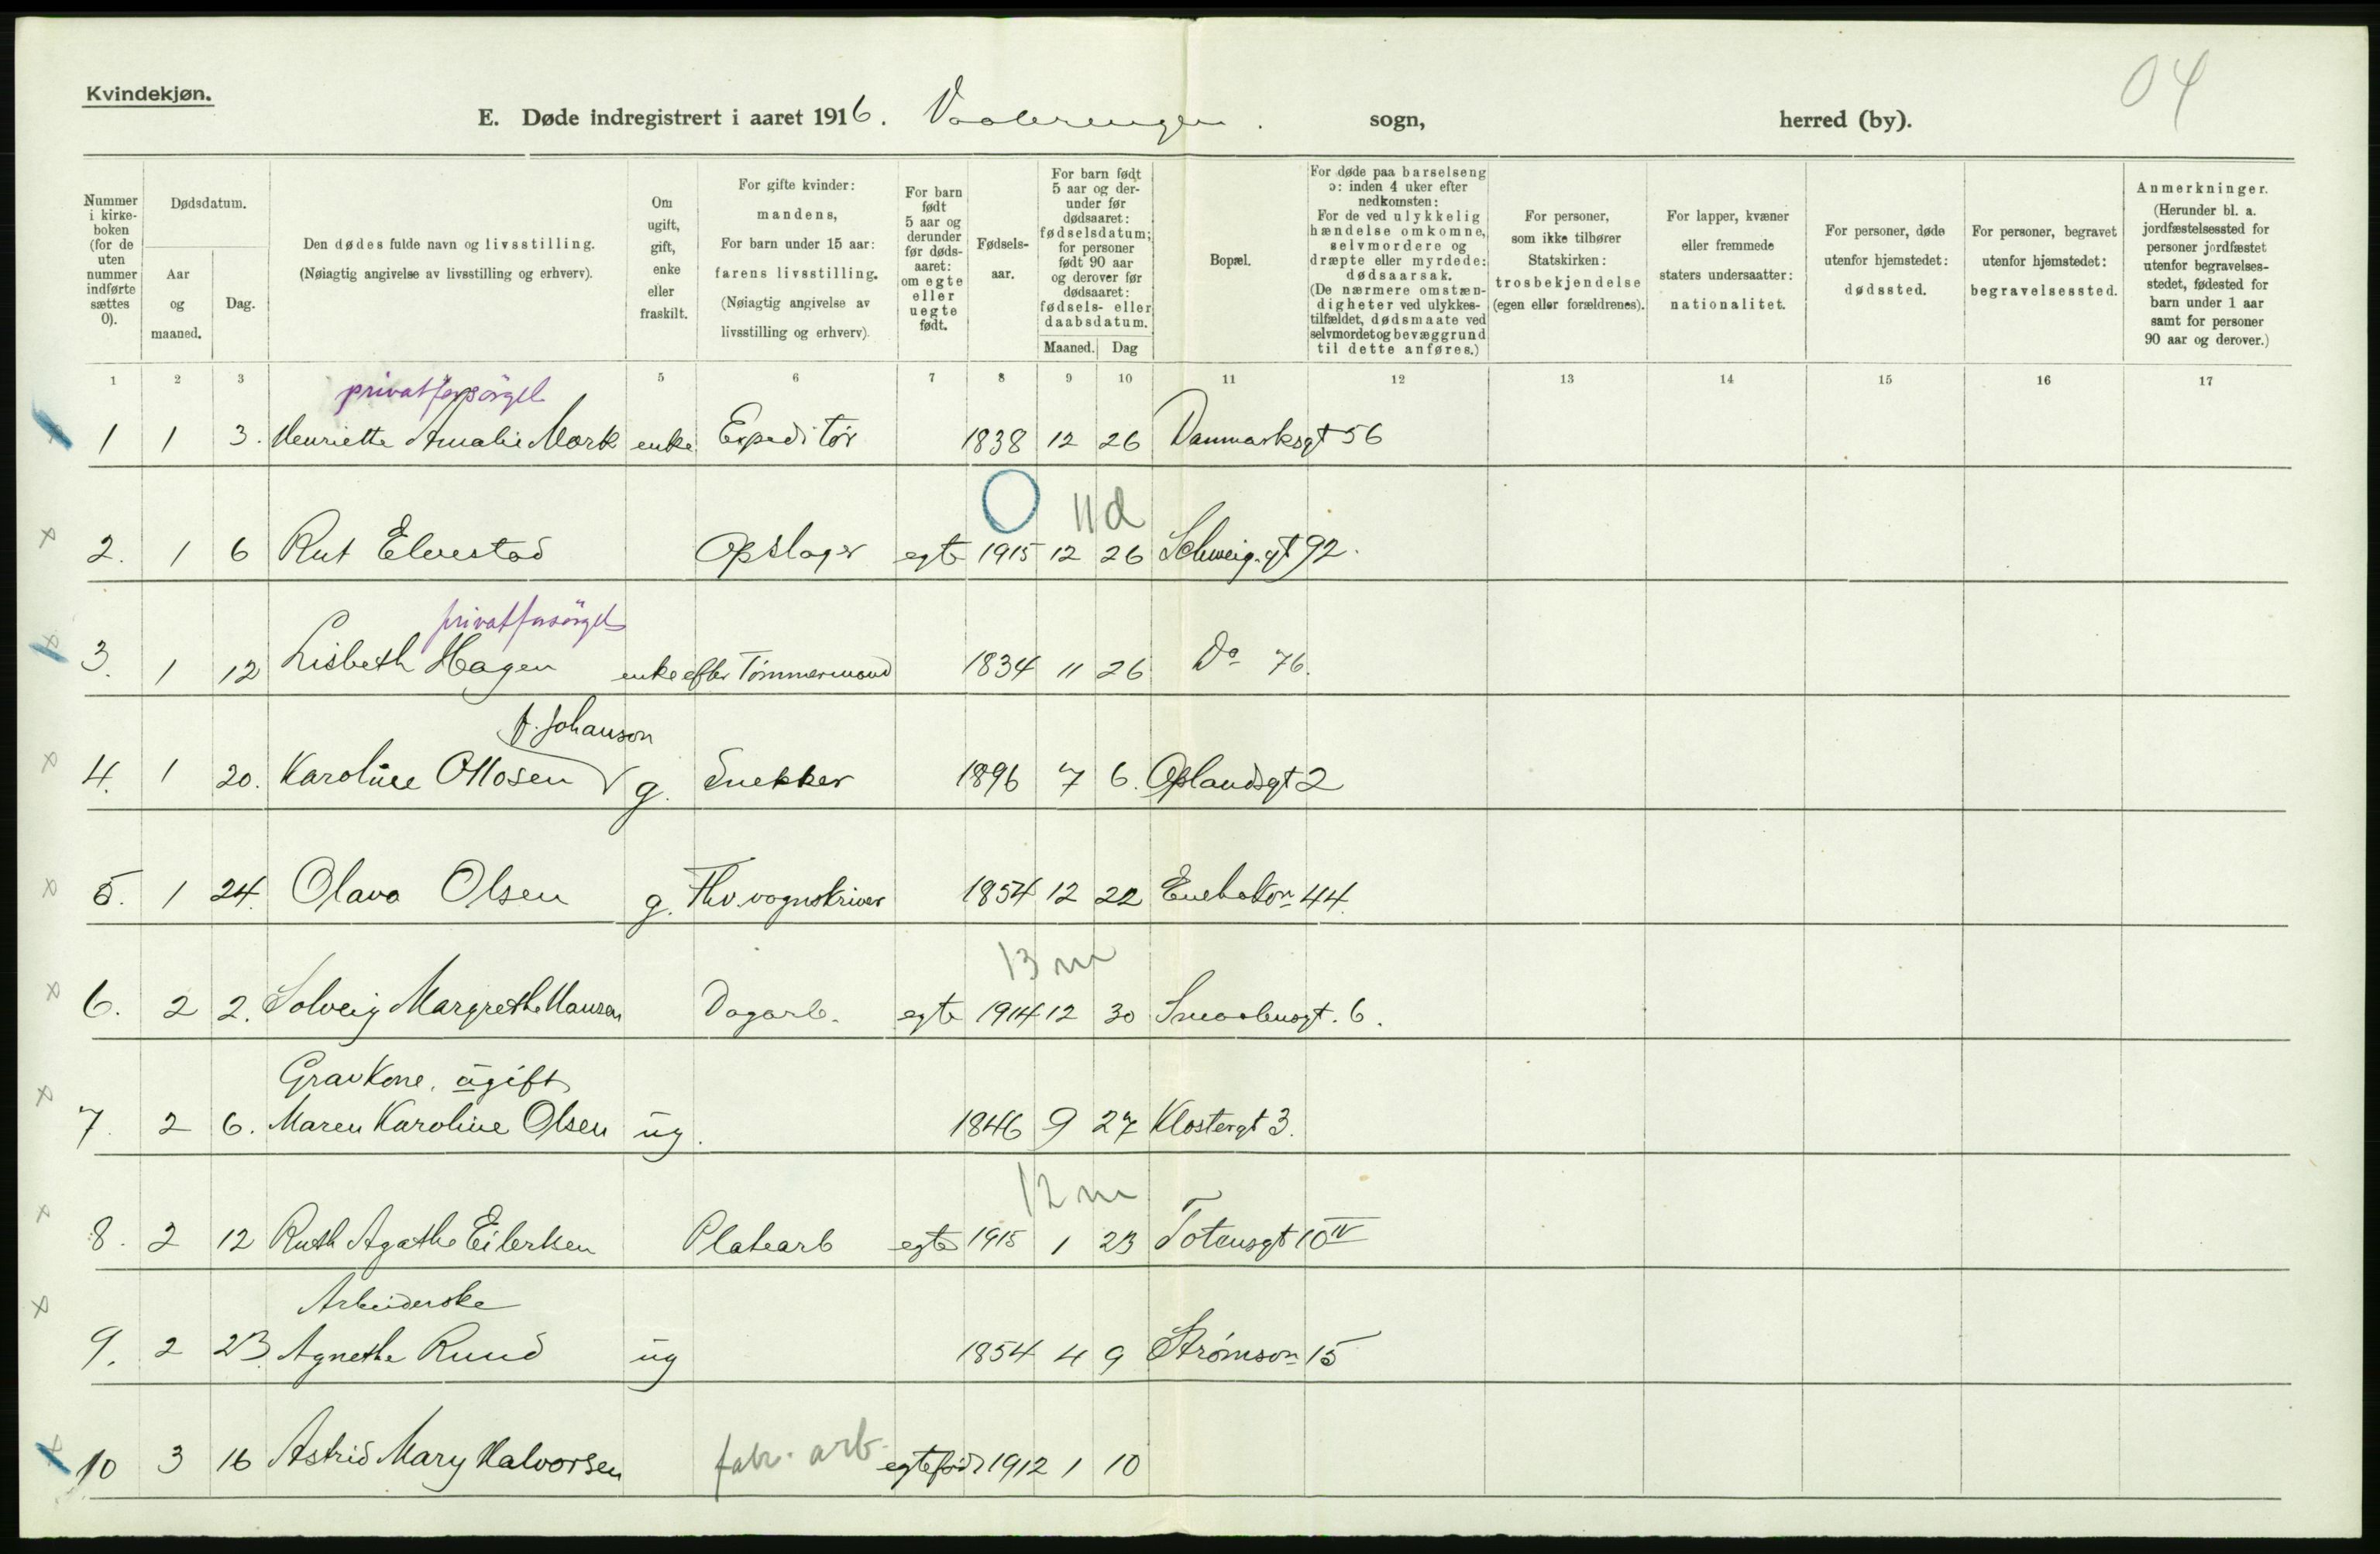 Kvindekjøn.
04
E. Døde indregistrert i aaret 1916. Vaalerengen. sogn, herred (by).
Nummer i kirkeboken (for de uten nummer indførte sættes 0).
Dødsdatum.
Aar og maaned.
Dag.
Den dødes fulde navn og livsstilling.
(Nøiagtig angivelse av livsstilling og erhverv).
Om ugift, gift, enke eller fraskilt.
For gifte kvinder: mandens,
For barn under 15 aar: farens livsstilling.
(Nøiagtig angivelse av livsstilling og erhverv).
For barn født 5 aar og derunder før dødsaaret: om egte eller uegte født.
Fødselsaar.
For barn født 5 aar og derunder før dødsaaret: fødselsdatum; for personer født 90 aar og derover før dødsaaret: fødsels- eller daabsdatum.
Maaned. Dag
Bopæl.
For døde paa barselseng ɔ: inden 4 uker efter nedkomsten:
For de ved ulykkelig hændelse omkomne, selvmordere og dræpte eller myrdede: dødsaarsak.
(De nærmere omstændigheter ved ulykkestilfældet, dødsmaate ved selvmordet og bevæggrund til dette anføres.)
For personer, som ikke tilhører Statskirken: trosbekjendelse (egen eller forældrenes).
For lapper, kvæner eller fremmede staters undersaatter: nationalitet.
For personer, døde utenfor hjemstedet: dødssted.
For personer, begravet utenfor hjemstedet: begravelsessted.
Anmerkninger.
(Herunder bl. a. jordfæstelsessted for personer jordfæstet utenfor begravelsesstedet, fødested for barn under 1 aar samt for personer 90 aar og derover.)
1 2 3 5 6 7 8 9 10 11 12 13 14 15 16 17
privatforsörgel
1 1 3. Henriette Amalie Mork enke Expeditör 1838 12 26 Danmarksgt 56
11 d
2. 1 6 Rut Elvestad Opslager egte 1915 12 26 Schweig.gt 92.
privatforsörgel
3. 1 12 Lisbeth Hagen enke efter Tömmermand 1834 11 26 Do 76.
f. Johanson
4. 1 20. Karoline Ottosen g. Snekker 1896 7 6. Oplandsgt 2
5. 1 24. Olava Olsen g. Fhv. vognskriver 1854 12 22 Enebakvn 44.
13 m
6. 2 2. Solveig Margrethe Hansen Dagarb. egte 1914 12 30 Smaalensgt. 6.
Gravkone, ugift
7. 2 6. Maren Karoline Olsen ug. 1846 9 27 Klostergt 3.
12 m
8. 2 12 Ruth Agathe Eilertsen Platearb egte 1915 1 23 Totensgt 10 IV
Arbeiderske
9. 2 23. Agnethe Ruud ug 1854 4 9 Strömsvn 15
10 3 16 Astrid Mary Halvorsen fabr. arb. egtefød 1912 1 10